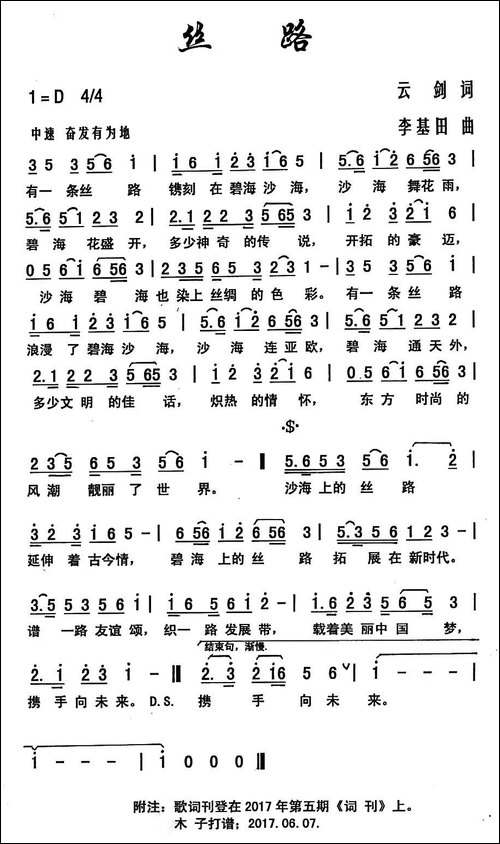 丝 路
1=D 4/4
云 剑 词
中速 奋发有为地
李基田 曲
3 5 3 5 6 1 | 1 6 1 2 3 1 6 5 | 5. 6 1 2 6 5 6 3 |
有一 条丝 路 镌刻 在 碧海 沙海， 沙 海 舞花 雨，
5. 6 5 1 2 3 2 | 2. 1 2 2 3 5 6 5 3 | 1 2 3 2 1 6 |
碧 海 花盛 开， 多少神 奇的 传 说， 开拓 的 豪 迈，
0 5 6 1 6 5 6 3 | 2 3 5 6 5 2 3 1 - | 3 5 3 5 6 1 |
沙海 碧 海也 染上 丝绸 的 色 彩。 有一 条 丝 路
1 6 1 2 3 1 6 5 | 5. 6 1 2 6 5 6 3 | 5. 6 5 1 2 3 2 |
浪漫 了 碧海 沙海， 沙 海 连亚 欧， 碧 海 通 天 外，
2. 1 2 2 3 5 6 5 3 | 1 2 3 2 1 6 | 0 5 6 1 6 5 6 3 |
多少文 明 的佳 话， 炽热 的情 怀， 东 方 时尚 的
·$·
2 3 5 6 5 3 5 6 1 - ‖ 5. 6 5 3 5 6 1. 2 |
风 潮 靓丽 了 世 界。 沙海 上的 丝 路
3 2 3 1 6 5 - | 6 5 6 1 2 6 5 6 3 | 5. 3 5 6 1 2 3 - |
延伸 着 古今情， 碧 海 上 的 丝 路 拓 展 在 新时代。
3. 5 5 3 5 6 1 - | 1 6 5 6 1 2 - | 1. 6 2 3 5 6 5 3 |
谱 一路 友谊 颂， 织一 路 发展 带， 载着美 丽中 国 梦，
结束句，渐慢.
2. 1 2 3 1 - ‖ 2. 3 2 1 6 5 6 ∨ | 1 - - - |
携 手 向 未来。D.S. 携 手 向 未 来。
1 - - - | 1 0 0 0 ‖
附注：歌词刊登在 2017 年第五期《词 刊》上。
木 子打谱；2017.06.07.